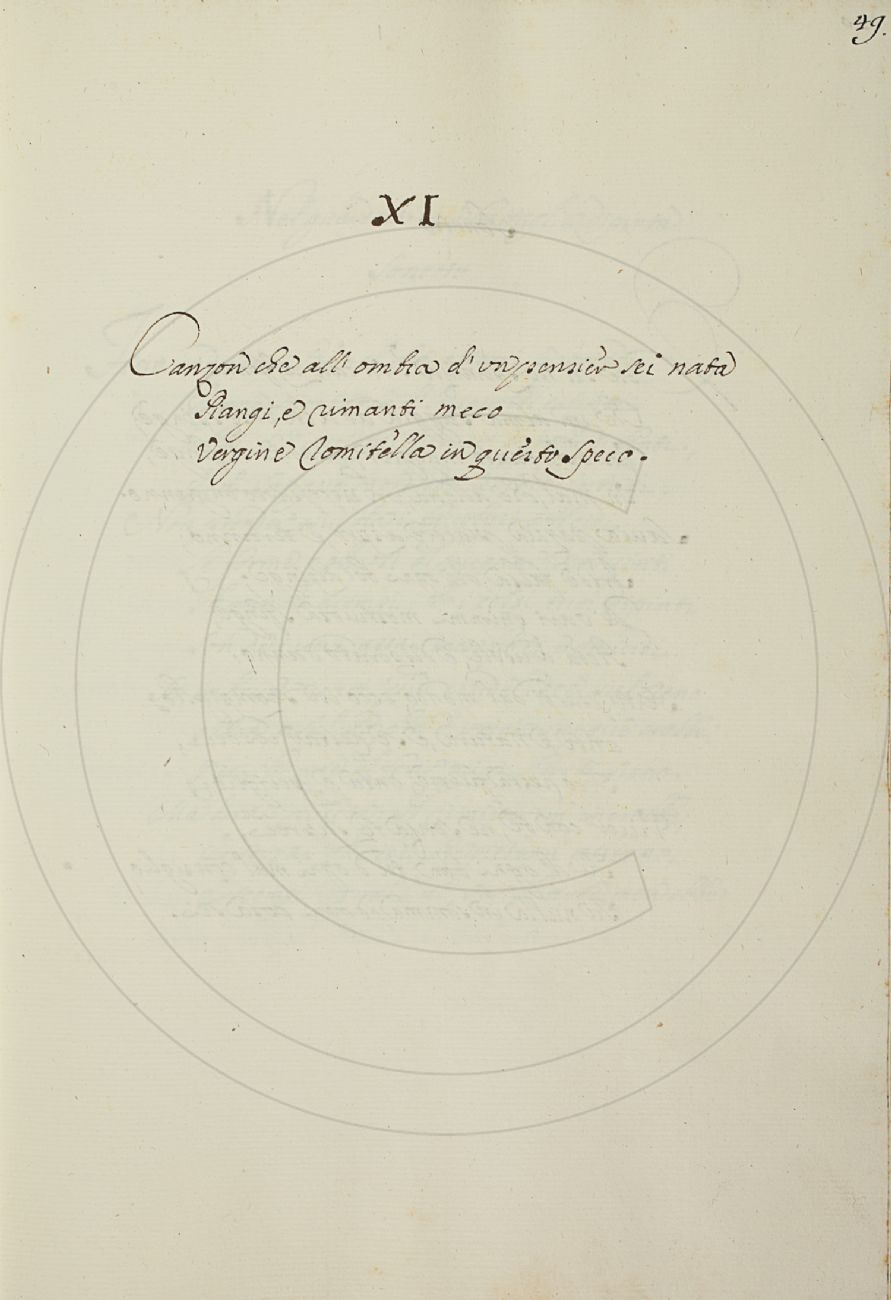 49.
XI
Canzon che all' ombra d' un pensièr sei nata
Piangi, e rimanti meco
Vergine Romitella in questo Speco.